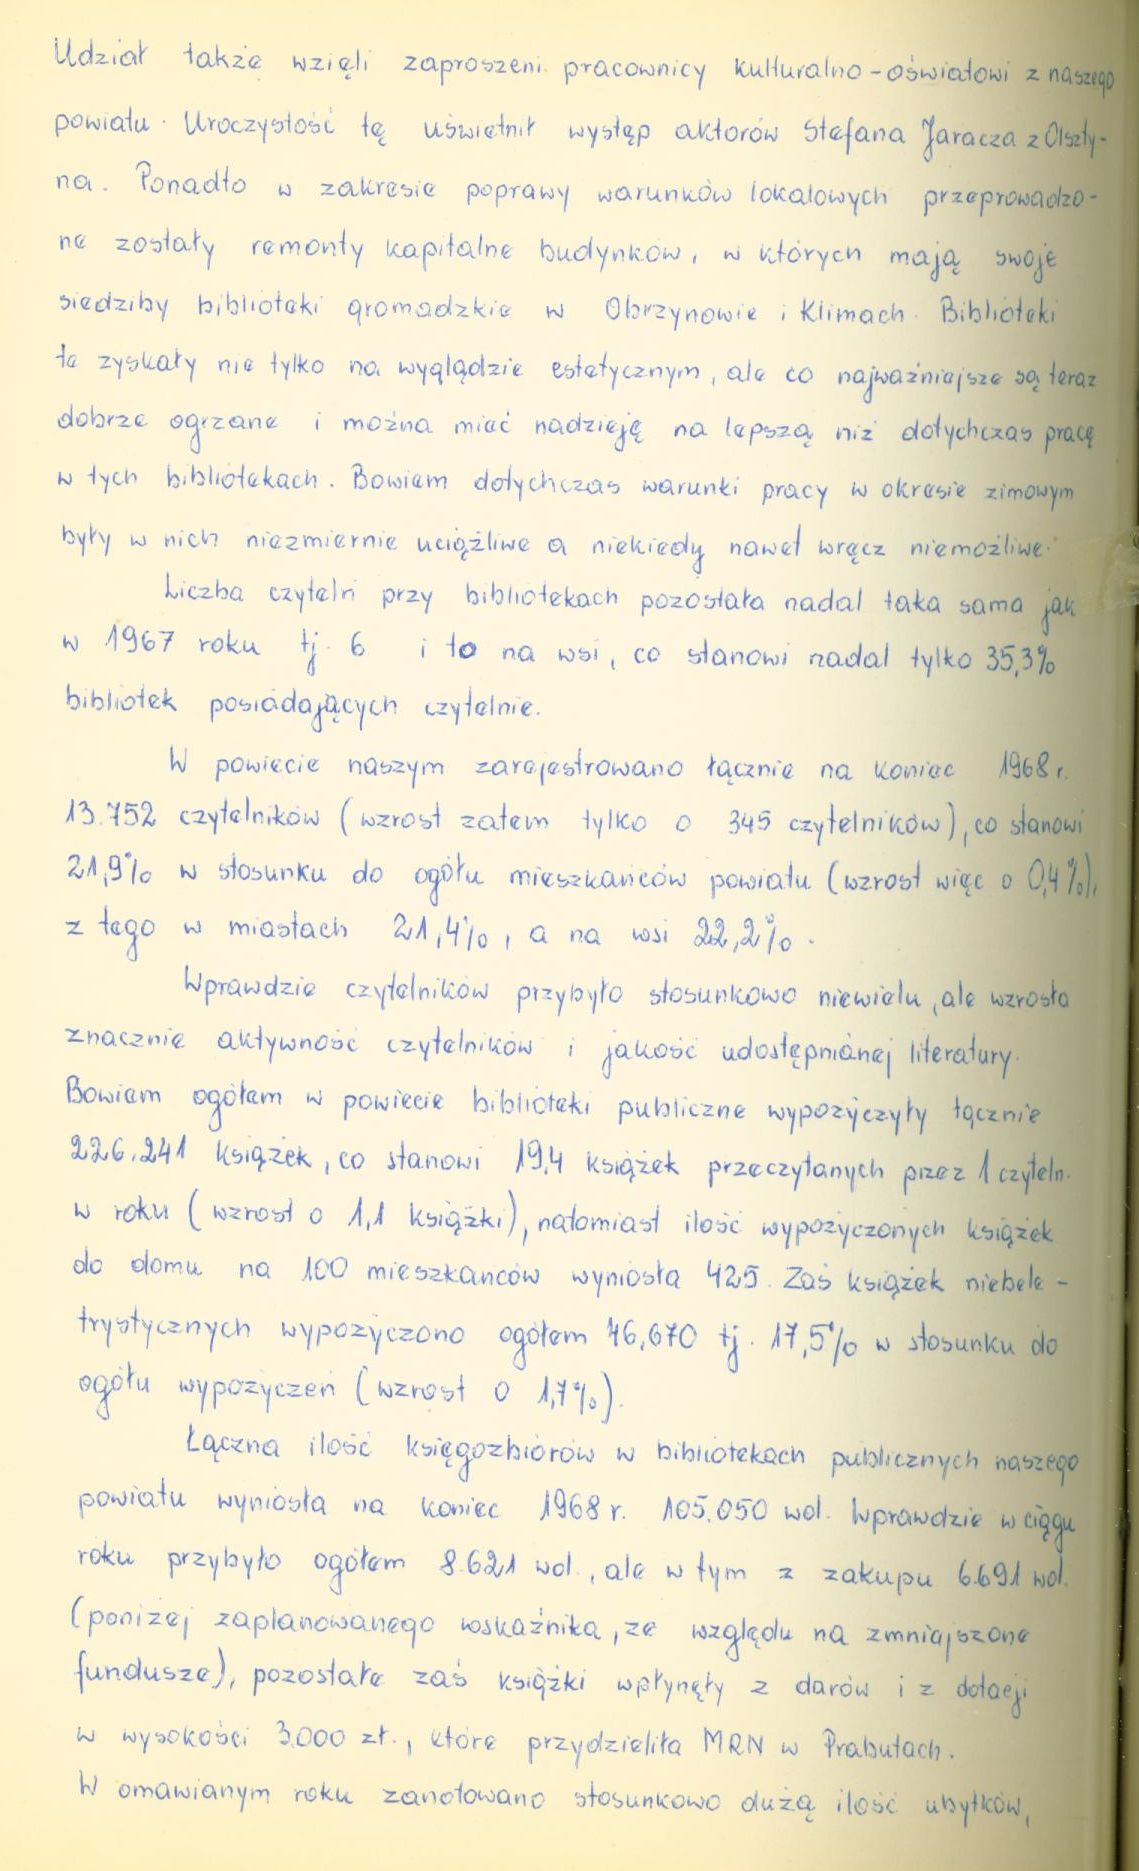 Udział także wzięli zaproszeni pracownicy kulturalno-oświatowi z naszego
powiatu. Uroczystość tę uświetnił występ aktorów Stefana Jaracza z Olszty-
na. Ponadto w zakresie poprawy warunków lokalowych przeprowadzo-
ne zostały remonty kapitalne budynków, w których mają swoje
siedziby biblioteki gromadzkie w Obrzynowie i Klimach. Biblioteki
te zyskały nie tylko na wyglądzie estetycznym, ale co najważniejsze są teraz
dobrze ogrzane i można mieć nadzieję na lepszą niż dotychczas pracę
w tych bibliotekach. Bowiem dotychczas warunki pracy w okresie zimowym
były w nich niezmiernie uciążliwe a niekiedy nawet wręcz niemożliwe.
Liczba czytelń przy bibliotekach pozostała nadal taka sama jak
w 1967 roku tj. 6 i to na wsi, co stanowi nadal tylko 35,3%
bibliotek posiadających czytelnie.
W powiecie naszym zarejestrowano łącznie na koniec 1968 r.
13.752 czytelników (wzrost zatem tylko o 345 czytelników), co stanowi
21,9% w stosunku do ogółu mieszkańców powiatu (wzrost więc o 0,4%),
z tego w miastach 21,4%, a na wsi 22,2%.
Wprawdzie czytelników przybyło stosunkowo niewielu, ale wzrosła
znacznie aktywność czytelników i jakość udostępnianej literatury.
Bowiem ogółem w powiecie biblioteki publiczne wypożyczyły łącznie
226.241 książek, co stanowi 19,4 książek przeczytanych przez 1 czyteln.
w roku (wzrost o 1,1 książki), natomiast ilość wypożyczonych książek
do domu na 100 mieszkańców wyniosła 425. Zaś książek niebele-
trystycznych wypożyczono ogółem 46,670 tj. 17,5% w stosunku do
ogółu wypożyczeń (wzrost o 1,7%).
Łączna ilość księgozbiorów w bibliotekach publicznych naszego
powiatu wyniosła na koniec 1968 r. 105.050 wol. Wprawdzie w ciągu
roku przybyło ogółem 8.621 wol., ale w tym z zakupu 6.691 wol.
(poniżej zaplanowanego wskaźnika, ze względu na zmniejszone
fundusze), pozostałe zaś książki wpłynęły z darów i z dotacji
w wysokości 3.000 zł., które przydzieliła MRN w Prabutach.
W omawianym roku zanotowano stosunkowo dużą ilość ubytków,